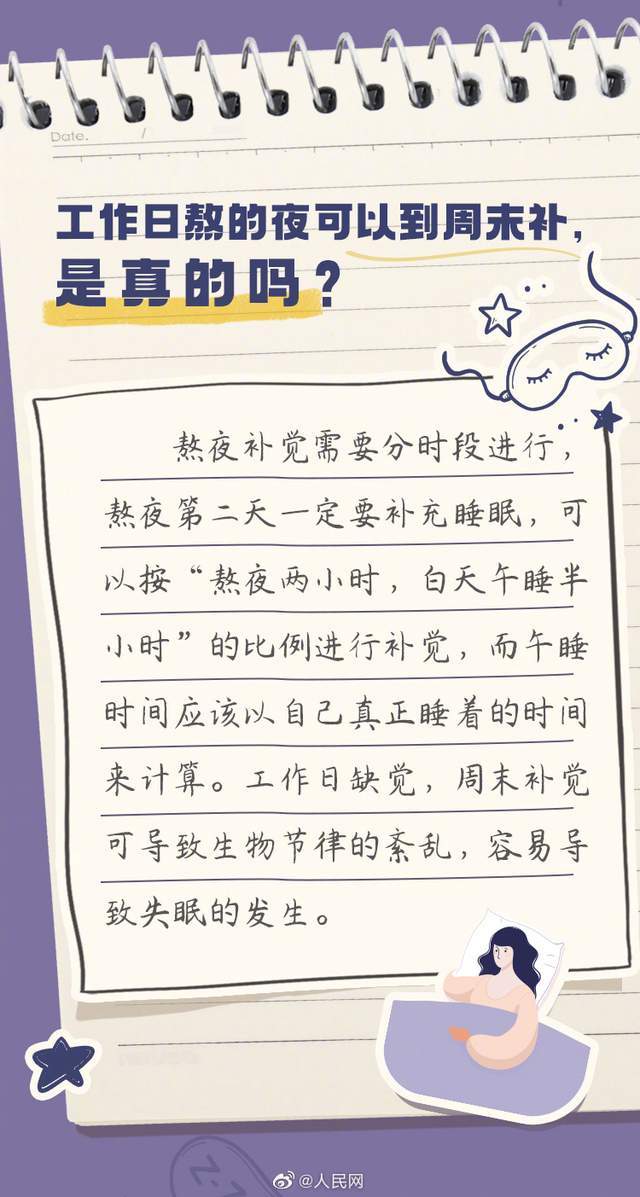 Date. /
工作日熬的夜可以到周末补，
是真的吗？
熬夜补觉需要分时段进行，
熬夜第二天一定要补充睡眠，可
以按“熬夜两小时，白天午睡半
小时”的比例进行补觉，而午睡
时间应该以自己真正睡着的时间
来计算。工作日缺觉，周末补觉
可导致生物节律的紊乱，容易导
致失眠的发生。
@人民网